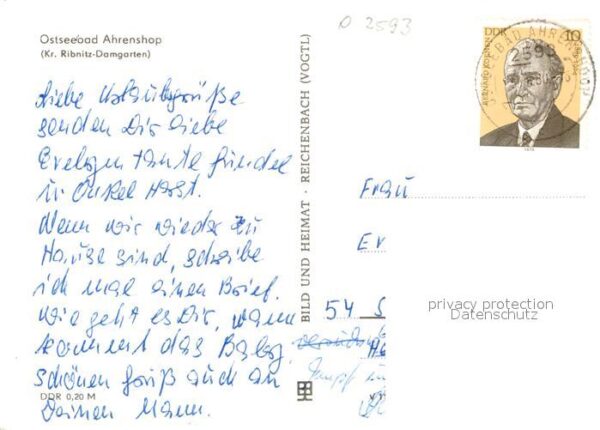 Ostseebad Ahrenshop
(Kr. Ribnitz-Damgarten)
Liebe Urlaubsgrüße
senden Dir liebe
Evelyn Tante
u. Onkel Horst.
Wenn wir wieder zu
Hause sind, schreibe
ich mal einen Brief.
Wie geht es Dir, wann
kommt das Baby,
schönen Gruß auch an
Deinen Mann.
DDR 0,20 M
BILD UND HEIMAT · REICHENBACH (VOGTL)
O 2593
DDR
10
2593
Frau
Ev
54 S
privacy protection
Datenschutz